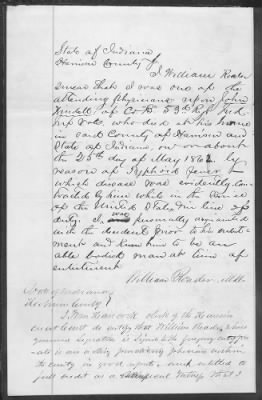 State of Indiana
Harrison County
I William Reader
swear that I was one of the
attending Physicians upon John
of Co 53d Regt Ind
Vols, who died at his home
in said County of Harrison and
State of Indiana, on or about
the 25th day of May 1862 by
reason of Typhoid fever
which disease was evidently con-
tracted by him while in the service
of the United States, in line of
duty. I was personally acquainted
with the decedent prior to his enlist-
ment and knew him to be an
able bodied man at time of
enlistment
William Reader M.D.
State of Indiana
Harrison County
I, Clerk of the Harrison
Court do certify that William Reader whose
genuine signature is signed to the foregoing
is an acting practicing physician within
the County in good repute and entitled to
full credit as a witness